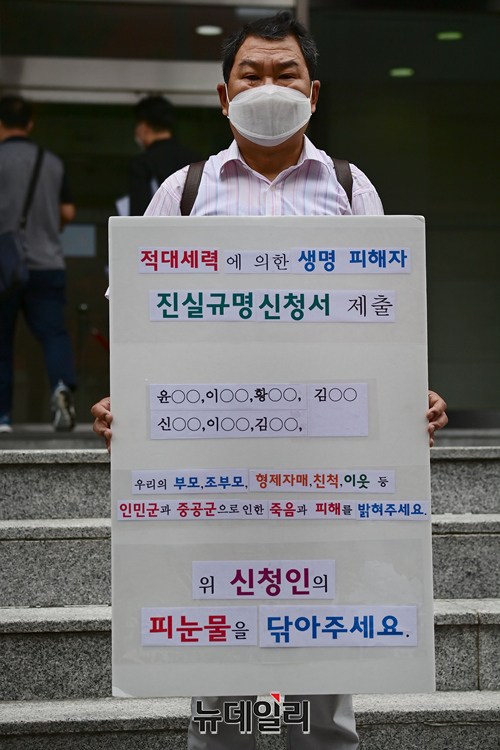 적대세력에 의한 생명 피해자
진실규명신청서 제출
윤○○,이○○,황○○, 김○○
신○○,이○○,김○○,
우리의 부모,조부모, 형제자매,친척,이웃 등
인민군과 중공군으로인한 죽음과 피해를 밝혀주세요.
위 신청인의
피눈물을 닦아주세요.
뉴데일리